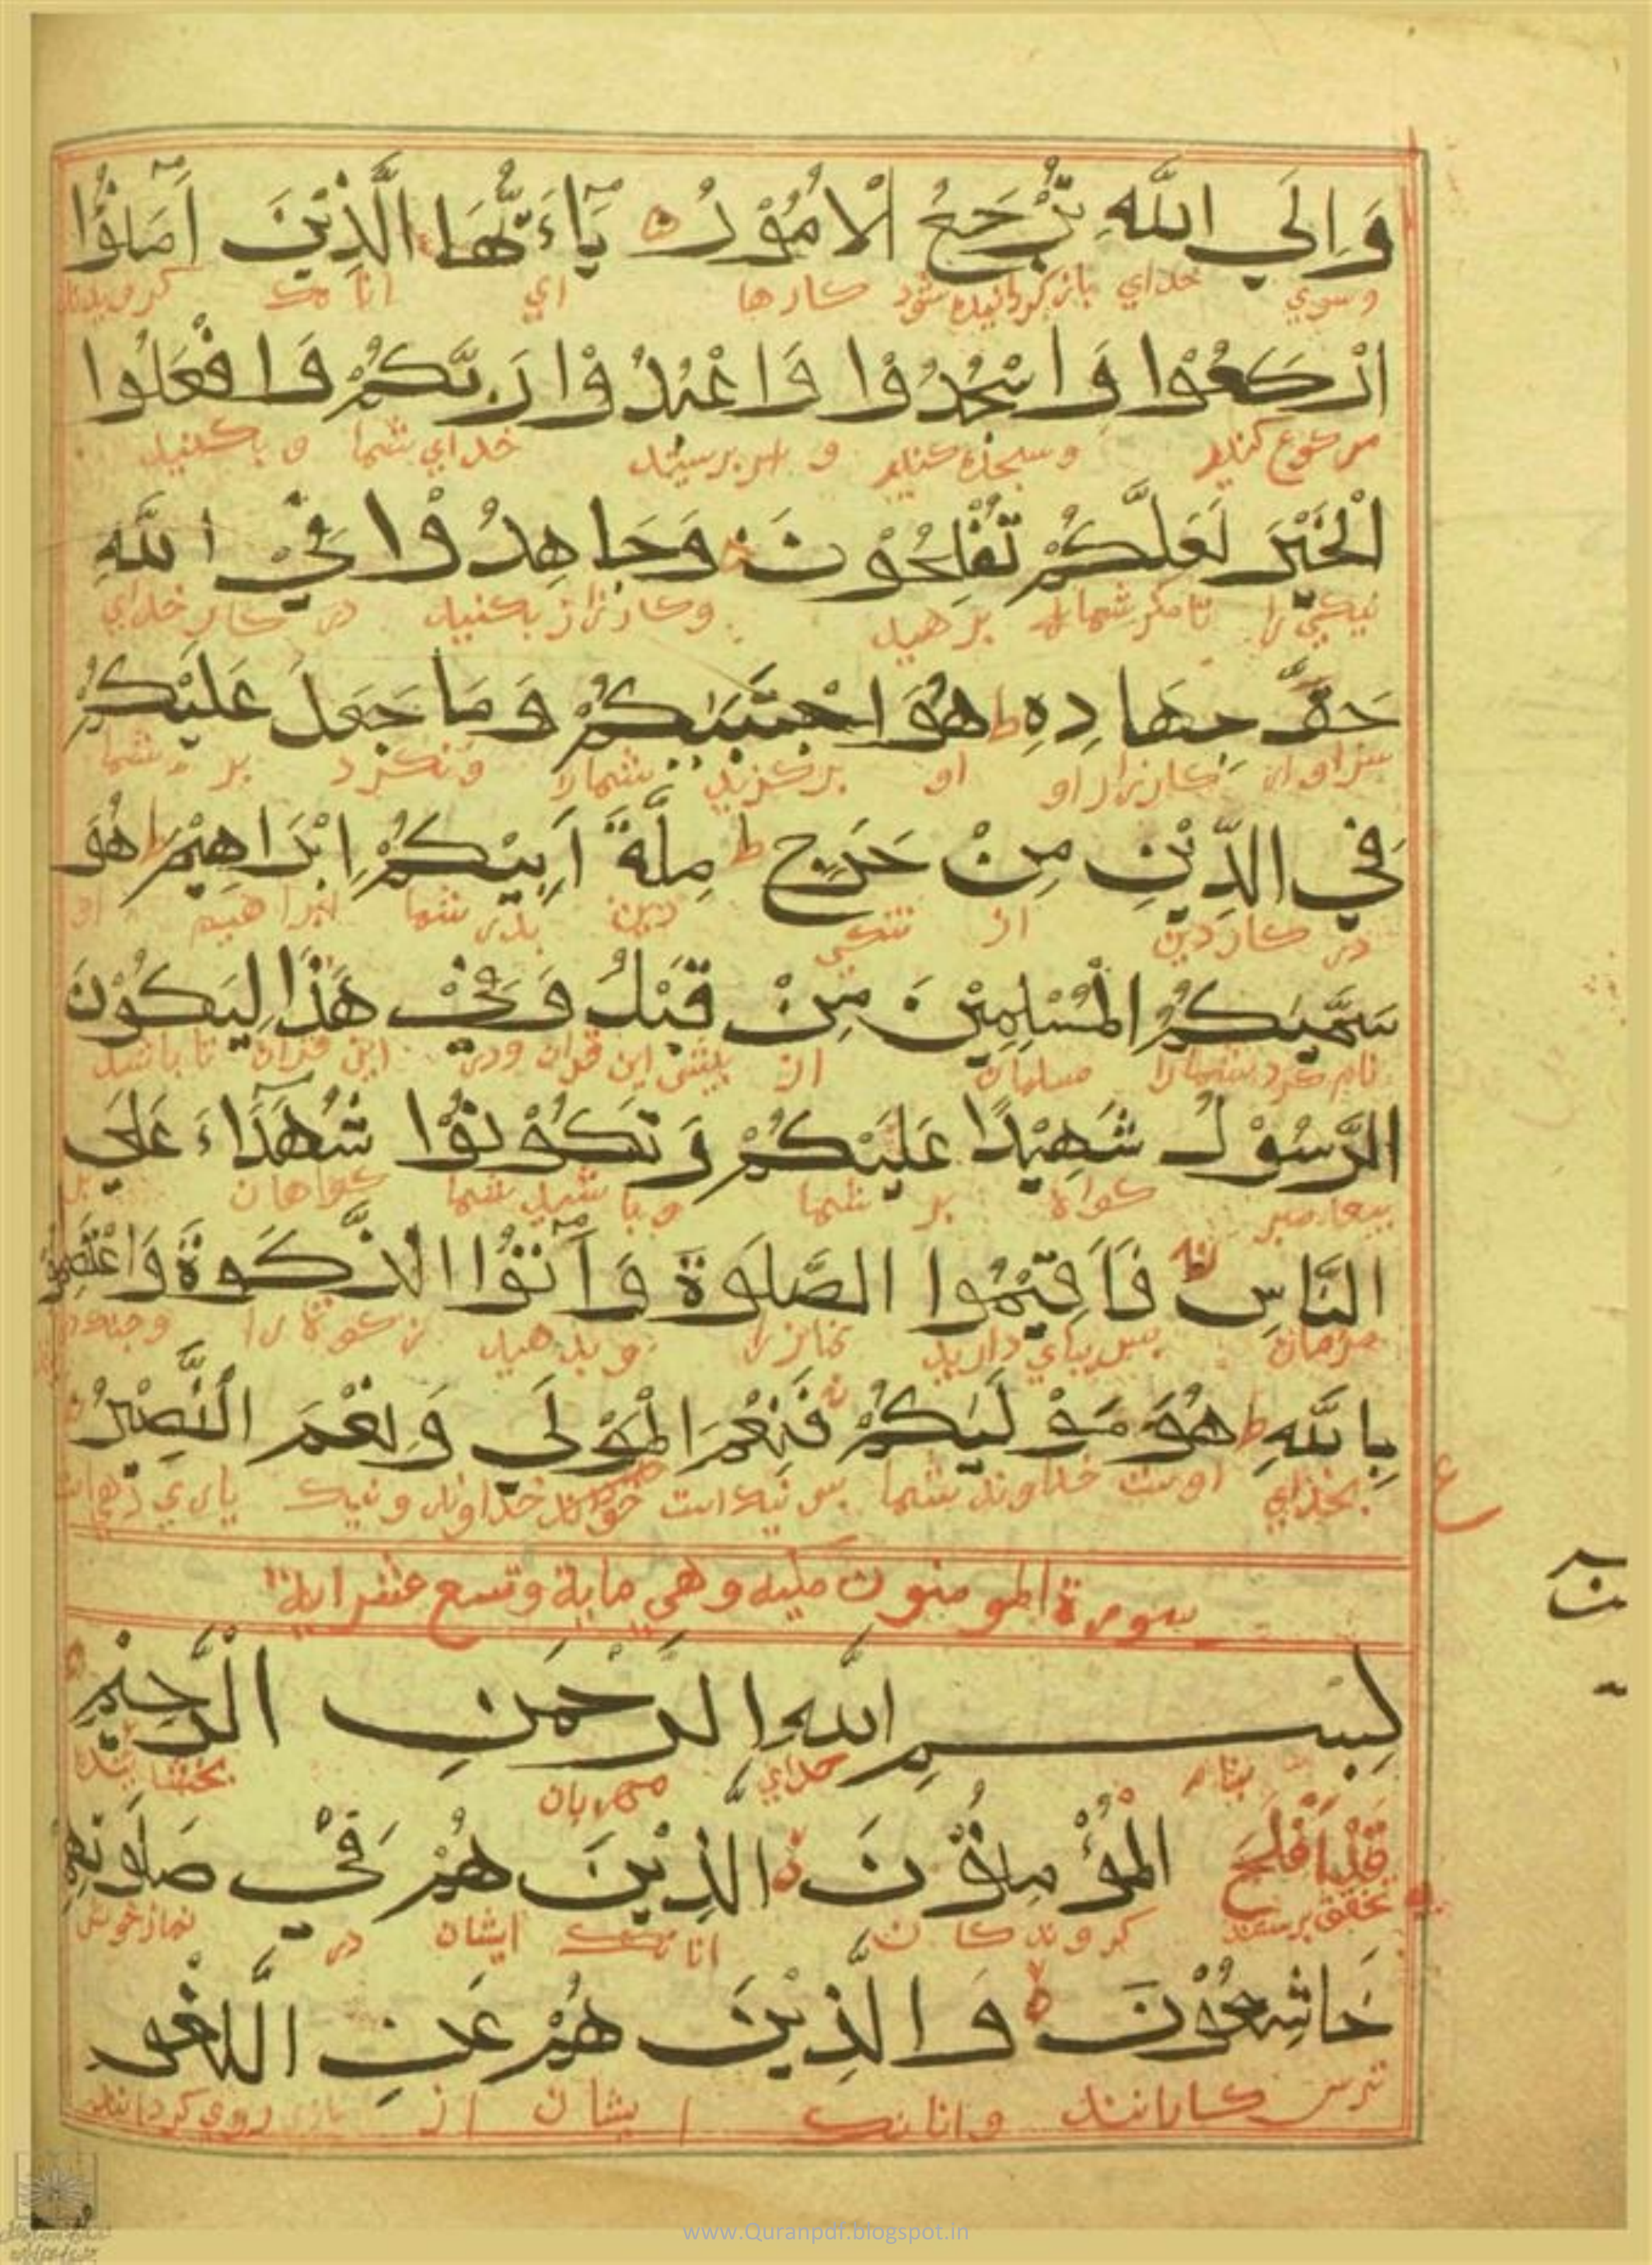 وَاِلَي اللَّهِ تُرْجَعُ الْاُمُوْرُ يَآءَيُّهَا الَّذِيْنَ آمَنُوْا
وسوي خداي بازگردانيده شود كارها اي انانك
ارْكَعُوْا وَاسْجُدُوْا وَاعْبُدُوْا رَبَّكُمْ وَافْعَلُوا
ركوع كنيد وسجده كنيد و بپرسيد خداي شما و بكنيد
الْخَيْرَ لَعَلَّكُمْ تُفْلِحُوْنَ وَجَاهِدُوْا فِيْ اللَّهِ
نيكي را تا مگر شما برهيد وكارزار بكنيد در كار خداي
حَقَّ جِهَادِهِ ط هُوَ اجْتَبَىٰكُمْ وَمَا جَعَلَ عَلَيْكُمْ
سزاوار كارزار او او برگزيد شمارا ونكرد بر شما
فِي الدِّيْنِ مِنْ حَرَجٍ ط مِلَّةَ اَبِيْكُمْ اِبْرَاهِيْمَ ط هُوَ
در كار دين از تنگي دين پدر شما ابراهيم او
سَمَّىٰكُمُ الْمُسْلِمِيْنَ مِنْ قَبْلُ وَفِيْ هَذَا لِيَكُوْنَ
نام كرد شمارا مسلمان از پيش اين قران ودر اين قران تا باشد
الرَّسُوْلُ شَهِيْدًا عَلَيْكُمْ وَتَكُوْنُوْا شُهَدَآءَ عَلَي
پيغامبر گواه بر شما و باشيد شما گواهان بر
النَّاسِ فَاَقِيْمُوا الصَّلَوةَ وَآتُوْا الزَّكَوةَ وَاعْتَصِمُوْا
مردمان پس بپاي داريد نماز را و بدهيد زكوة را
بِاللَّهِ ط هُوَ مَوْلَىٰكُمْ فَنِعْمَ الْمَوْلَي وَنِعْمَ النَّصِيْرُ
بخداي اوست خداوند شما پس نيك است خداوند و نيك ياري
ع
سورة المومنون مكيه وهي ماية وتسع عشر اية
بِسْمِ اللَّهِ الرَّحْمَنِ الرَّحِيْمِ
بنام خداي مهربان بخشاينده
قَدْ اَفْلَحَ الْمُؤْمِنُوْنَ الَّذِيْنَ هُمْ فِيْ صَلَوتِهِمْ
بتحقيق برستند گروندگان انانك ايشان در نماز خويش
خَاشِعُوْنَ وَالَّذِيْنَ هُمْ عَنِ اللَّغْوِ
ترس كارانند وانانك ايشان از
www.Quranpdf.blogspot.in